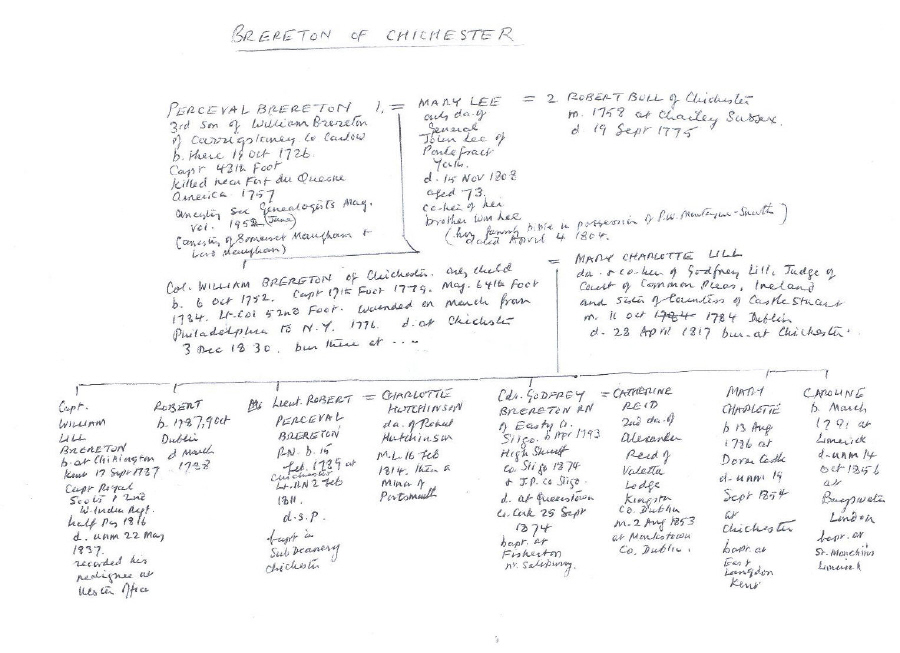 BRERETON OF CHICHESTER
PERCEVAL BRERETON 1. =
3rd son of William Brereton
of Carrigslaney Co Carlow
b. there 19 Oct 1726.
Capt 48th Foot
killed near Fort du Quesne
America 1757
ancestry see Genealogists Mag.
vol. 1958 (June)
(ancestry of Somerset Maugham +
Lord Maugham)
MARY LEE
only da. of
General
John Lee of
Pontefract
Yorks.
d. 15 NOV 1808
aged 73.
co-heir of her
brother Wm Lee
(her family bible in possession of P.W. Montague-Smith)
dated April 4 1804.
= 2 ROBERT BULL of Chichester
m. 1758 at Chailey Sussex.
d 19 Sept 1775
Col. WILLIAM BRERETON of Chichester. only child
b. 6 Oct 1752. Capt 17th Foot 1775. Maj. 64th Foot
1784. Lt-Col 52nd Foot. wounded on March from
Philadelphia to N.Y. 1776. d. at Chichester
3 Dec 1830. bur there at ....
= MARY CHARLOTTE LILL
da. & co-heir of Godfrey Lill, Judge of
Court of Common Pleas, Ireland
and sister of Countess of Castle Stuart
m. 11 Oct 1784 1784 Dublin
d. 28 April 1817 bur. at Chichester.
Capt.
WILLIAM
LILL
BRERETON
b. at
Kent 17 Sept 1787
Capt Royal
Scots
W. India Regt.
half Pay 1816
d. unm 22 May
1837.
recorded his
pedigree at
Ulster Office
ROBERT
b. 1787, 9 Oct
Dublin
d March
1788
Lieut. ROBERT
PERCEVAL
BRERETON
R.N. b. 15
Feb. 1789 at
Chichester
Lt. RN 2 Feb
1811.
d.s.p.
bapt in
Sub Deanery
Chichester
= CHARLOTTE
HUTCHINSON
da. of Robert
Hutchinson
M.L. 16 Feb
1814. then a
minor of
Portsmouth
Cdr. GODFREY
BRERETON RN
of Easky Co.
Sligo. b Apr 1793
High Sheriff
Co. Sligo 1874
& J.P. Co Sligo.
d. at Queenstown
Co. Cork 25 Sept
1874
bapt. at
Fisherton
nr. Salisbury.
= CATHERINE
REID
2nd da. of
Alexander
Reid of
Valetta
Lodge
Kingston
Co. Dublin
m. 2 Aug 1853
at Monkstown
Co. Dublin.
MARY
CHARLOTTE
b 13 Aug
1786 at
Dover Castle
d. unm 19
Sept 1854
at
Chichester
bapt. at
East
Langdon
Kent
CAROLINE
b. March
1791 at
Limerick
d. unm 14
Oct 1856
at
Bayswater
London
bapt. at
St. Munchins
Limerick